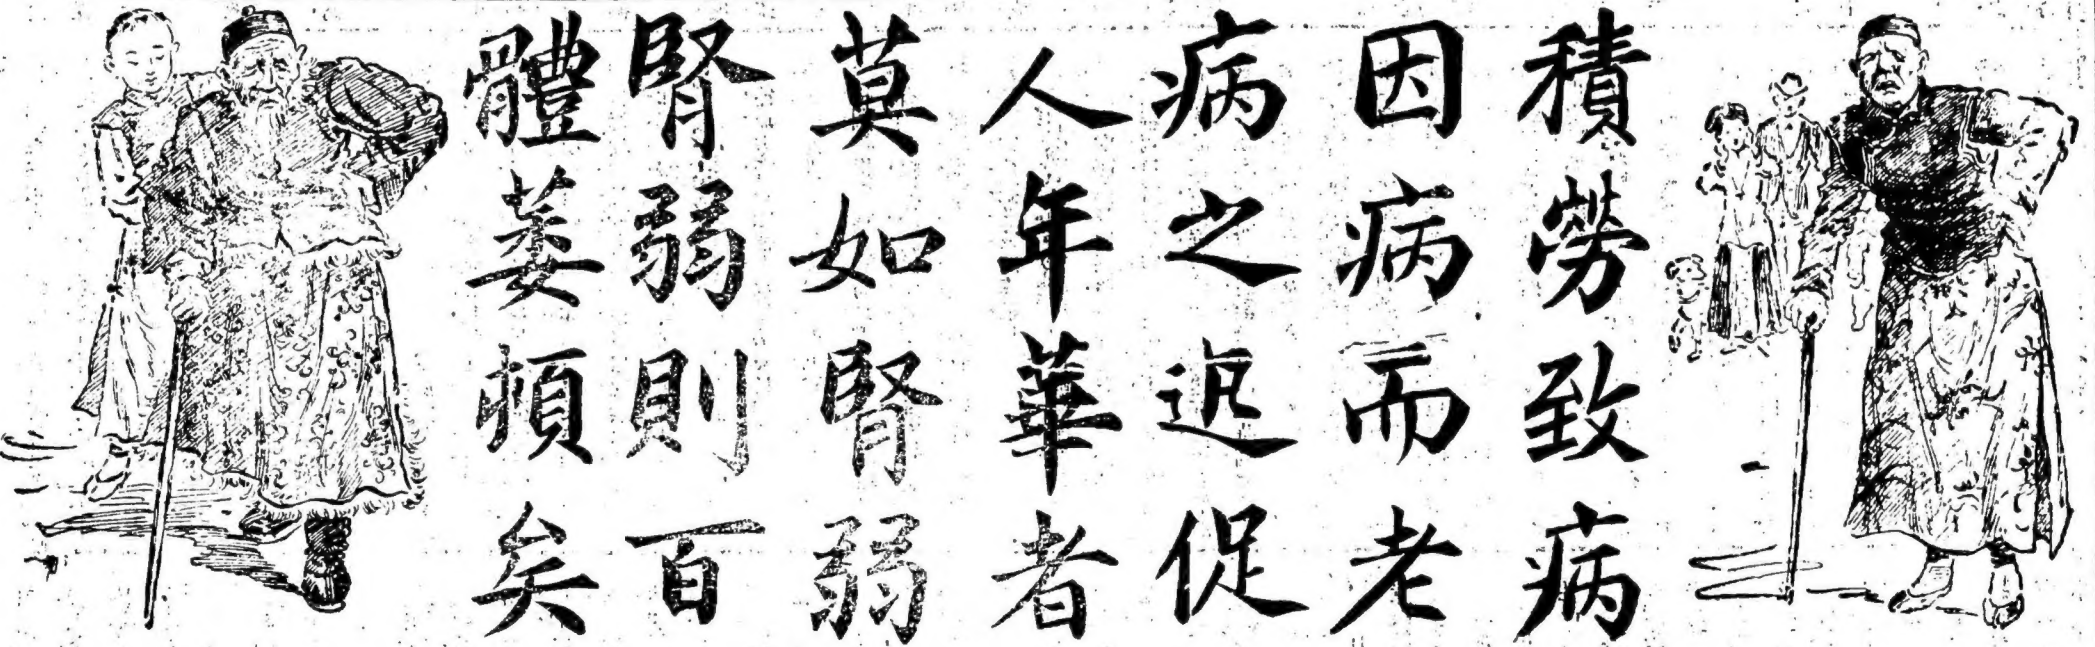 積勞致病
因病而老
病之迅促
人年華者
莫如腎弱
腎弱則百
體萎頓矣